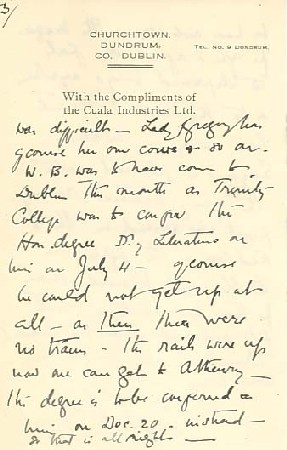 3/
CHURCHTOWN,
DUNDRUM,
CO. DUBLIN.
TEL. NO. 9 DUNDRUM.
With the Compliments of
the Cuala Industries Ltd.
was difficult — Lady Gregory has
of course her own cows & so on.
W. B. was to have come to
Dublin this month as Trinity
College was to confer the
Hon. degree Dr of Literature on
him on July 4 — of course
he could not get up at
all — as then there were
no trains — the rails were up
now one can get to Athenry —
the degree is to be conferred on
him on Dec. 20. — instead —
so that is all right —